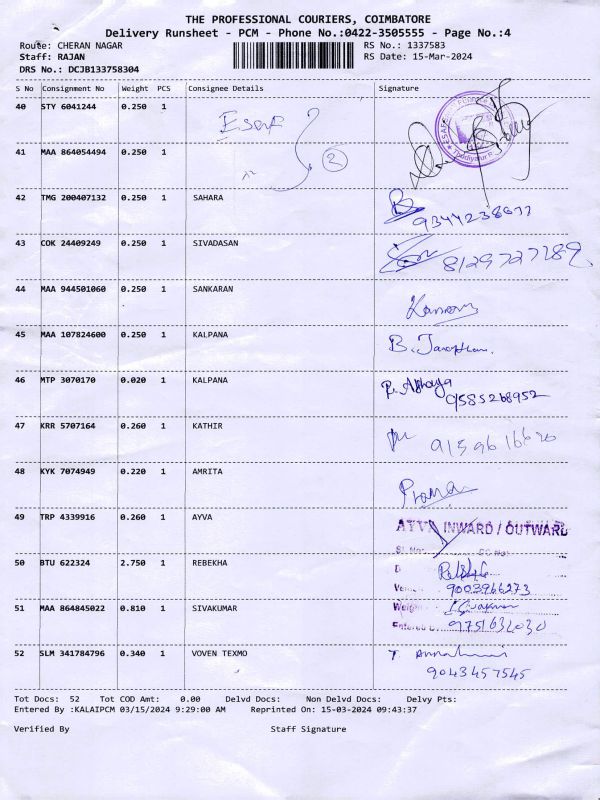 THE PROFESSIONAL COURIERS, COIMBATORE
Delivery Runsheet - PCM - Phone No.:0422-3505555 - Page No.:4
Route: CHERAN NAGAR RS No.: 1337583
Staff: RAJAN RS Date: 15-Mar-2024
DRS No.: DCJB133758304
S No Consignment No Weight PCS Consignee Details Signature
40 STY 6041244 0.250 1
Esaf
41 MAA 864054494 0.250 1
2
42 TMG 200407132 0.250 1 SAHARA
43 COK 24409249 0.250 1 SIVADASAN
8129727289
44 MAA 944501060 0.250 1 SANKARAN
45 MAA 107824600 0.250 1 KALPANA
B.
46 MTP 3070170 0.020 1 KALPANA
9585268952
47 KRR 5707164 0.260 1 KATHIR
48 KYK 7074949 0.220 1 AMRITA
49 TRP 4339916 0.260 1 AYVA AYVA INWARD / OUTWARD
50 BTU 622324 2.750 1 REBEKHA
9003966273
51 MAA 864845022 0.810 1 SIVAKUMAR Weight
9751632030
52 SLM 341784796 0.340 1 VOVEN TEXMO T.
9043457545
Tot Docs: 52 Tot COD Amt: 0.00 Delvd Docs: Non Delvd Docs: Delvy Pts:
Entered By :KALAIPCM 03/15/2024 9:29:00 AM Reprinted On: 15-03-2024 09:43:37
Verified By Staff Signature